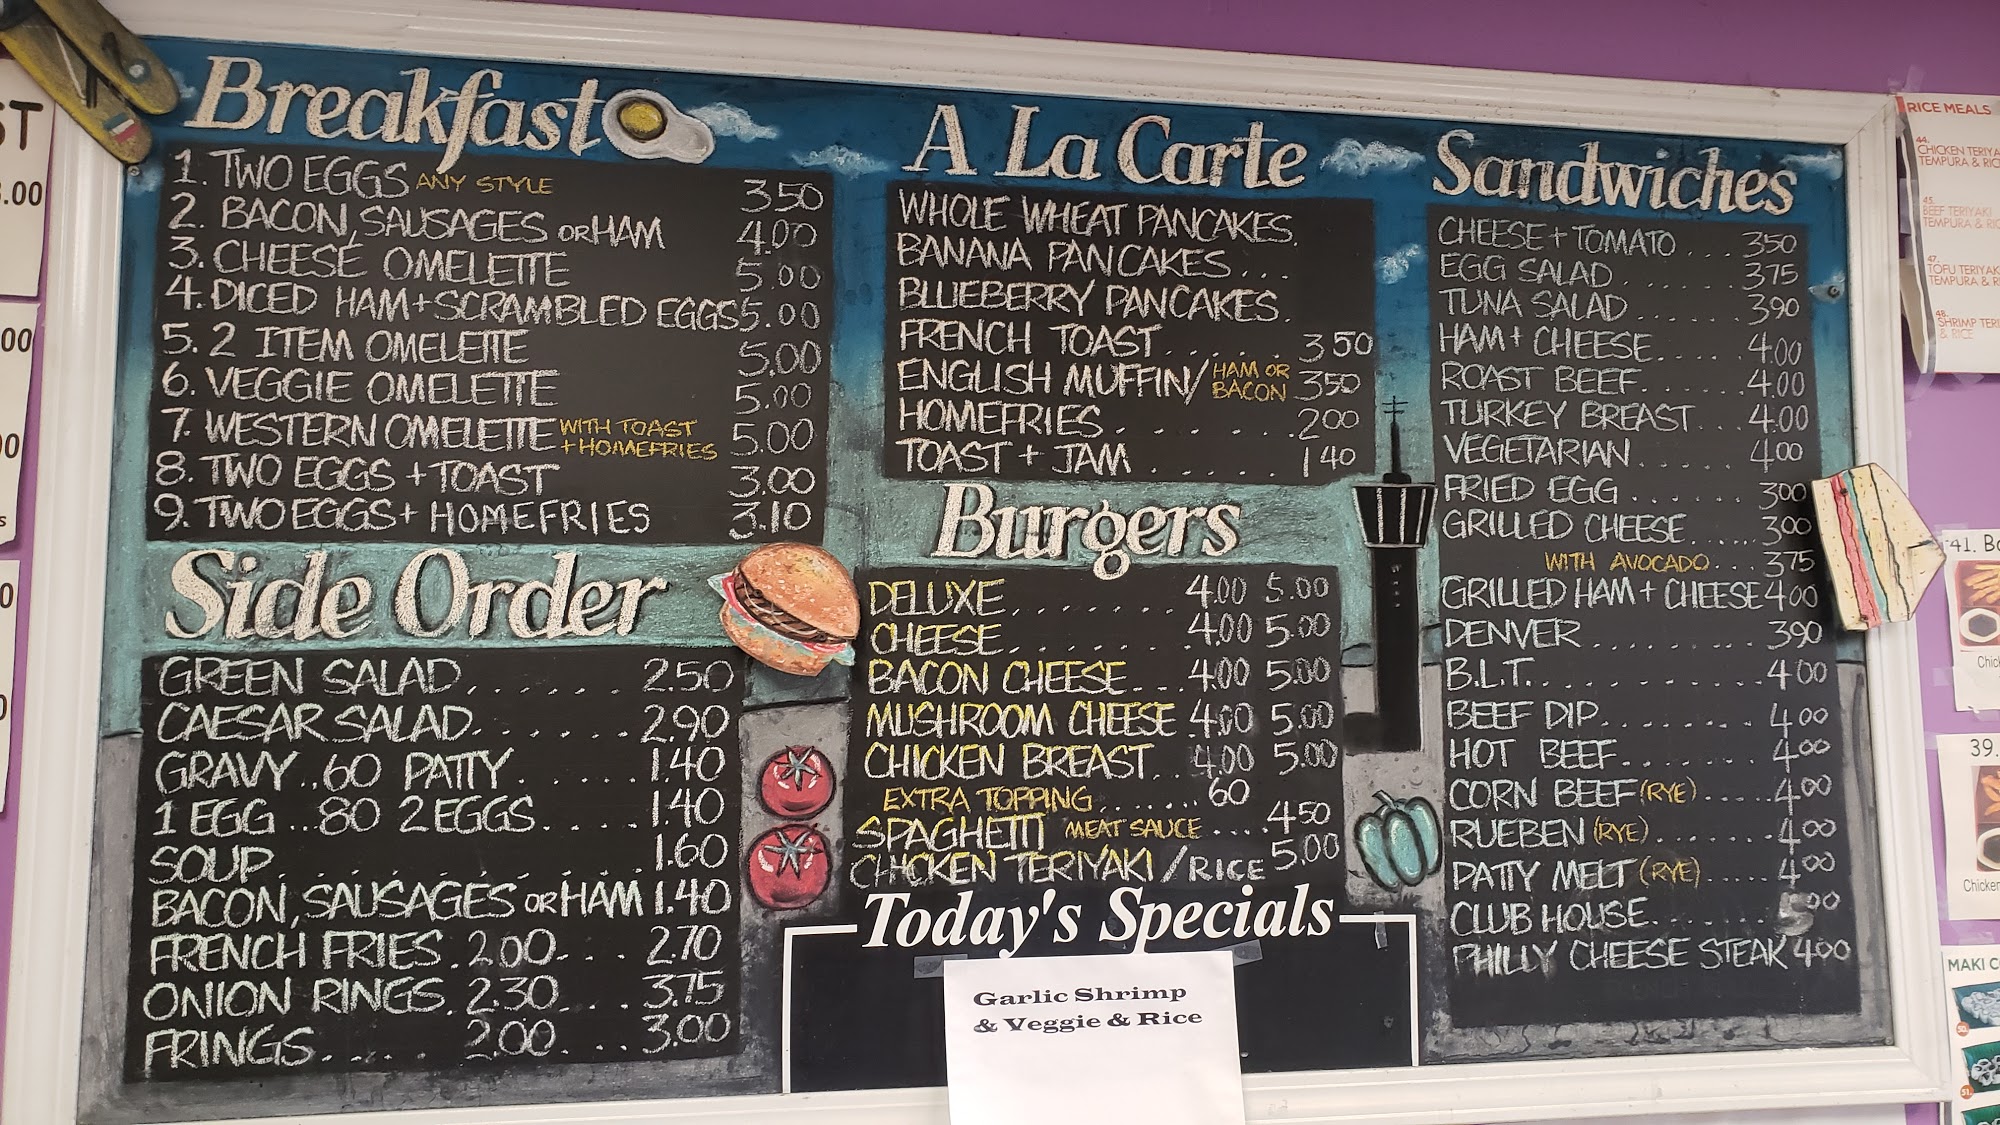 Breakfast
1. TWO EGGS ANY STYLE 3.50
2. BACON, SAUSAGES OR HAM 4.00
3. CHEESE OMELETTE 5.00
4. DICED HAM + SCRAMBLED EGGS 5.00
5. 2 ITEM OMELETTE 5.00
6. VEGGIE OMELETTE 5.00
7. WESTERN OMELETTE WITH TOAST + HOMEFRIES 5.00
8. TWO EGGS + TOAST 3.00
9. TWO EGGS + HOMEFRIES 3.10
Side Order
GREEN SALAD...... 2.50
CAESAR SALAD...... 2.90
GRAVY..60 PATTY..... 1.40
1 EGG...80 2 EGGS.... 1.40
SOUP............ 1.60
BACON, SAUSAGES OR HAM 1.40
FRENCH FRIES. 2.00... 2.70
ONION RINGS. 2.30... 3.75
FRINGS.... 2.00... 3.00
A La Carte
WHOLE WHEAT PANCAKES.
BANANA PANCAKES...
BLUEBERRY PANCAKES.
FRENCH TOAST..... 3 50
ENGLISH MUFFIN/ HAM OR BACON 350
HOMEFRIES....... 200
TOAST + JAM..... 1 40
Burgers
DELUXE....... 4.00 5.00
CHEESE....... 4.00 5.00
BACON CHEESE... 4.00 5.00
MUSHROOM CHEESE 4.00 5.00
CHICKEN BREAST... 4.00 5.00
EXTRA TOPPING....... 60
SPAGHETTI MEAT SAUCE.... 4.50
CHICKEN TERIYAKI / RICE 5.00
Today's Specials
Garlic Shrimp
& Veggie & Rice
Sandwiches
CHEESE + TOMATO... 350
EGG SALAD...... 375
TUNA SALAD..... 390
HAM + CHEESE.... 4.00
ROAST BEEF..... 4.00
TURKEY BREAST... 4.00
VEGETARIAN..... 400
FRIED EGG...... 300
GRILLED CHEESE..... 300
WITH AVOCADO... 375
GRILLED HAM + CHEESE 400
DENVER........ 390
B.L.T........... 400
BEEF DIP....... 400
HOT BEEF...... 400
CORN BEEF (RYE)..... 400
RUEBEN (RYE)...... 400
PATTY MELT (RYE)..... 400
CLUB HOUSE...... 500
PHILLY CHEESE STEAK 400
RICE MEALS
44.
CHICKEN
TEMPURA &
45.
BEEF TERIYAKI
TEMPURA &
47.
TOFU
TEMPURA &
48.
SHRIMP
& RICE
41.
39.
MAKI
50.
51.